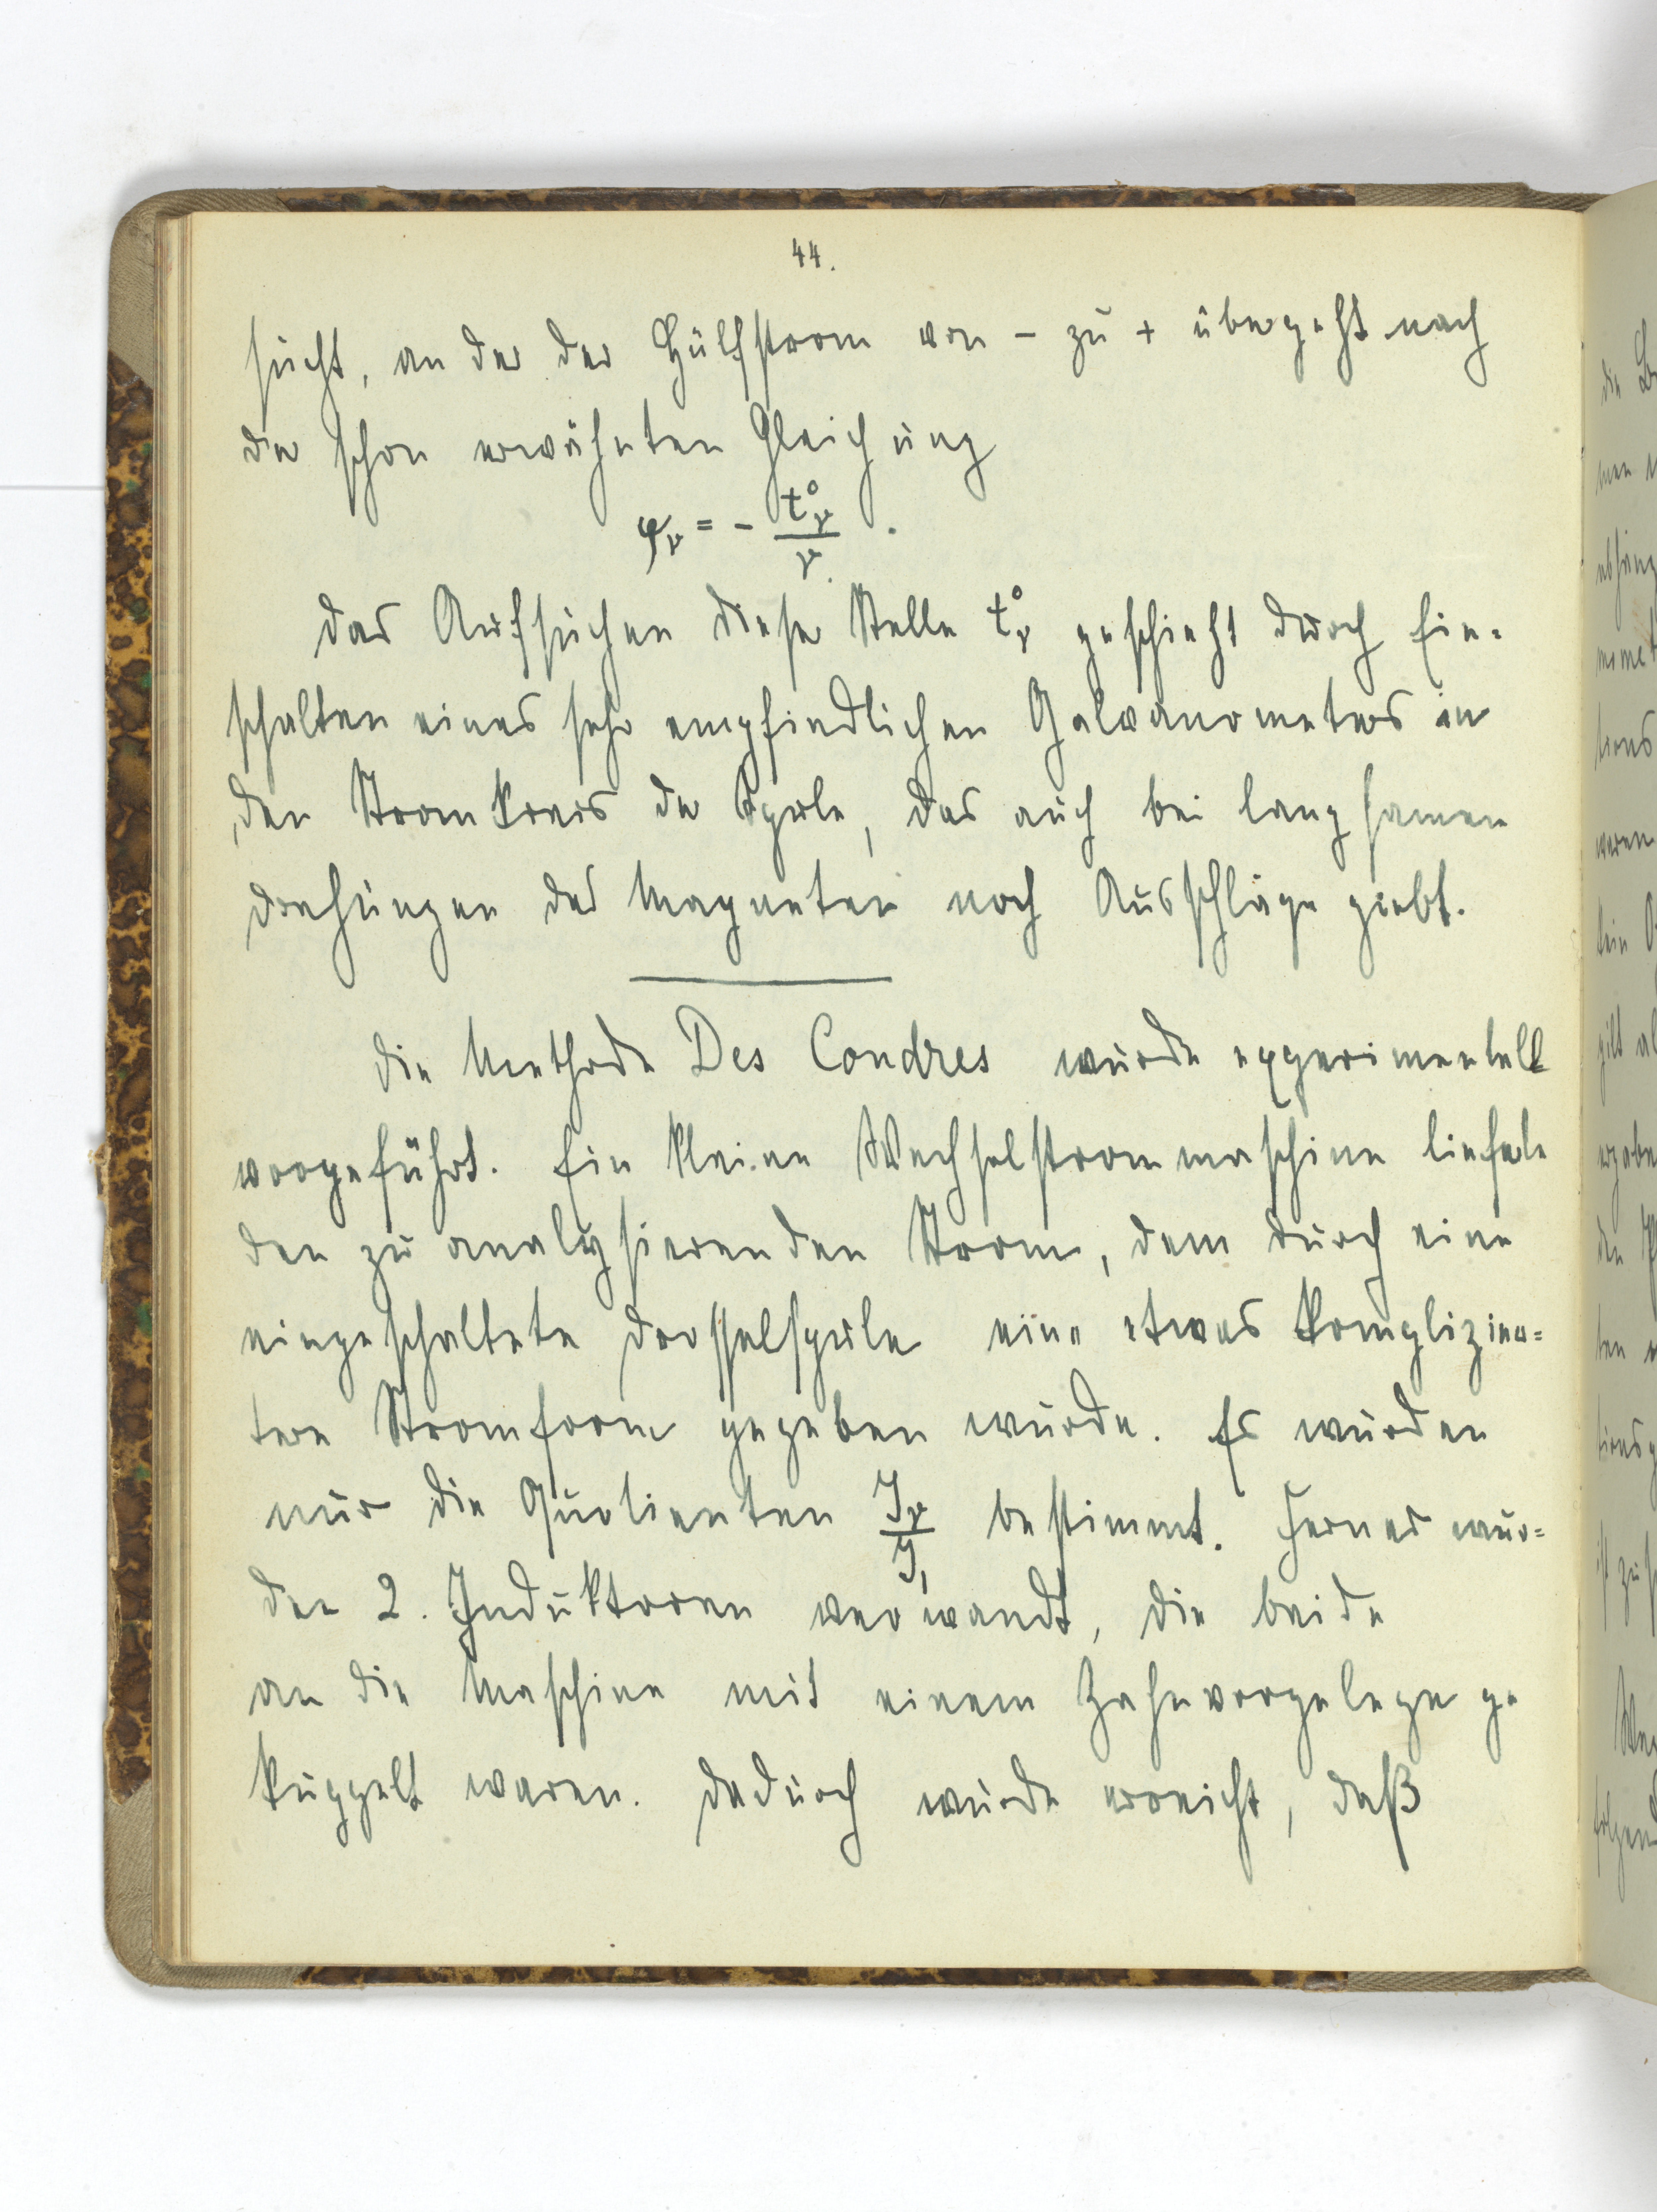 44.
sucht, an der der Hülfsstrom von - zu + übergeht nach
der schon erwähnten Gleichung
φν = - t°ν / ν .
Das Aufsuchen dieser Stelle t°ν geschieht durch Ein=
schalten eines sehr empfindlichen Galvanometers in
den Stromkreis der Spule, das auch bei langsamen
Drehungen des Magneten noch Ausschläge giebt.
Die Methode Des Coudres wurde experimentell
vorgeführt. Ein kleine Wechselstrommaschine lieferte
den zu analysierenden Strom, dem durch eine
eingeschaltete Drosselspule eine etwas komplizier=
tere Stromform gegeben wurde. Es wurden
nur die Quotienten Jν / J1 bestimmt. Ferner wur=
den 2. Induktoren verwandt, die beide
an die Maschine mit einem Zahnvorgelege ge
kuppelt waren. Dadurch wurde erreicht, daß